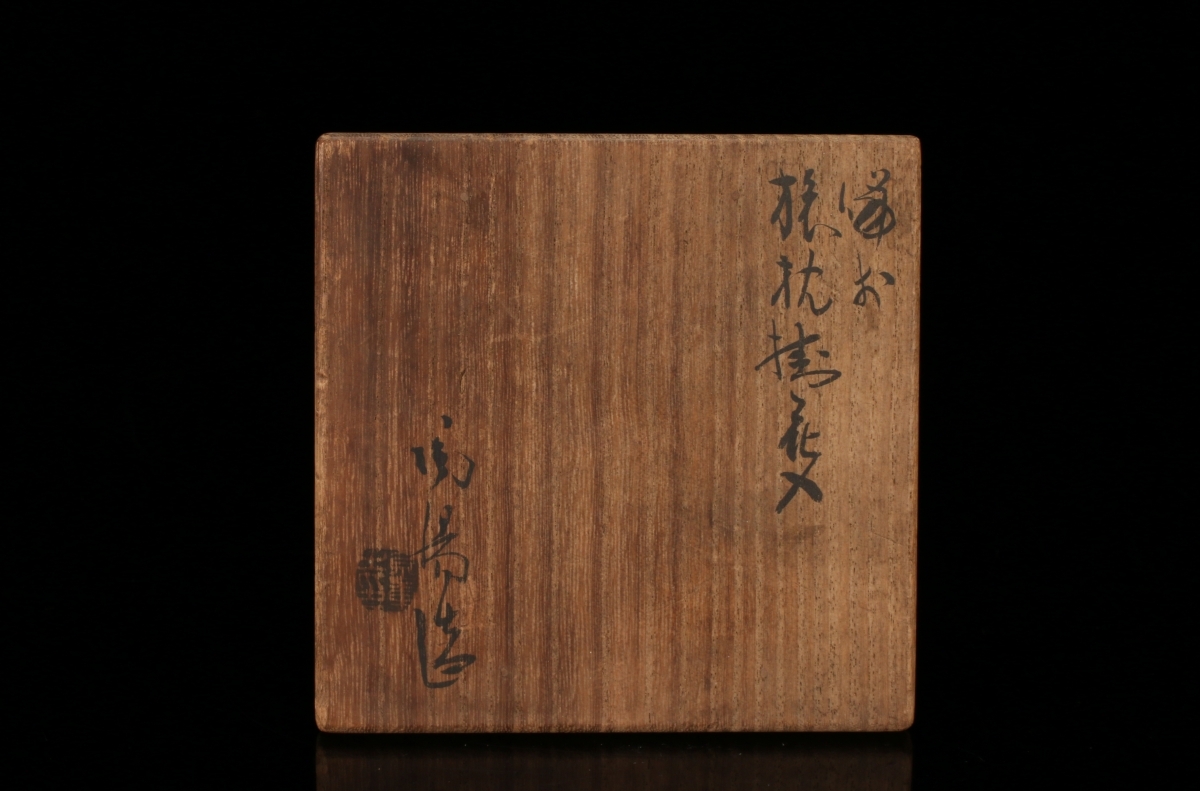 備前
旅枕掛花入
陶陽造